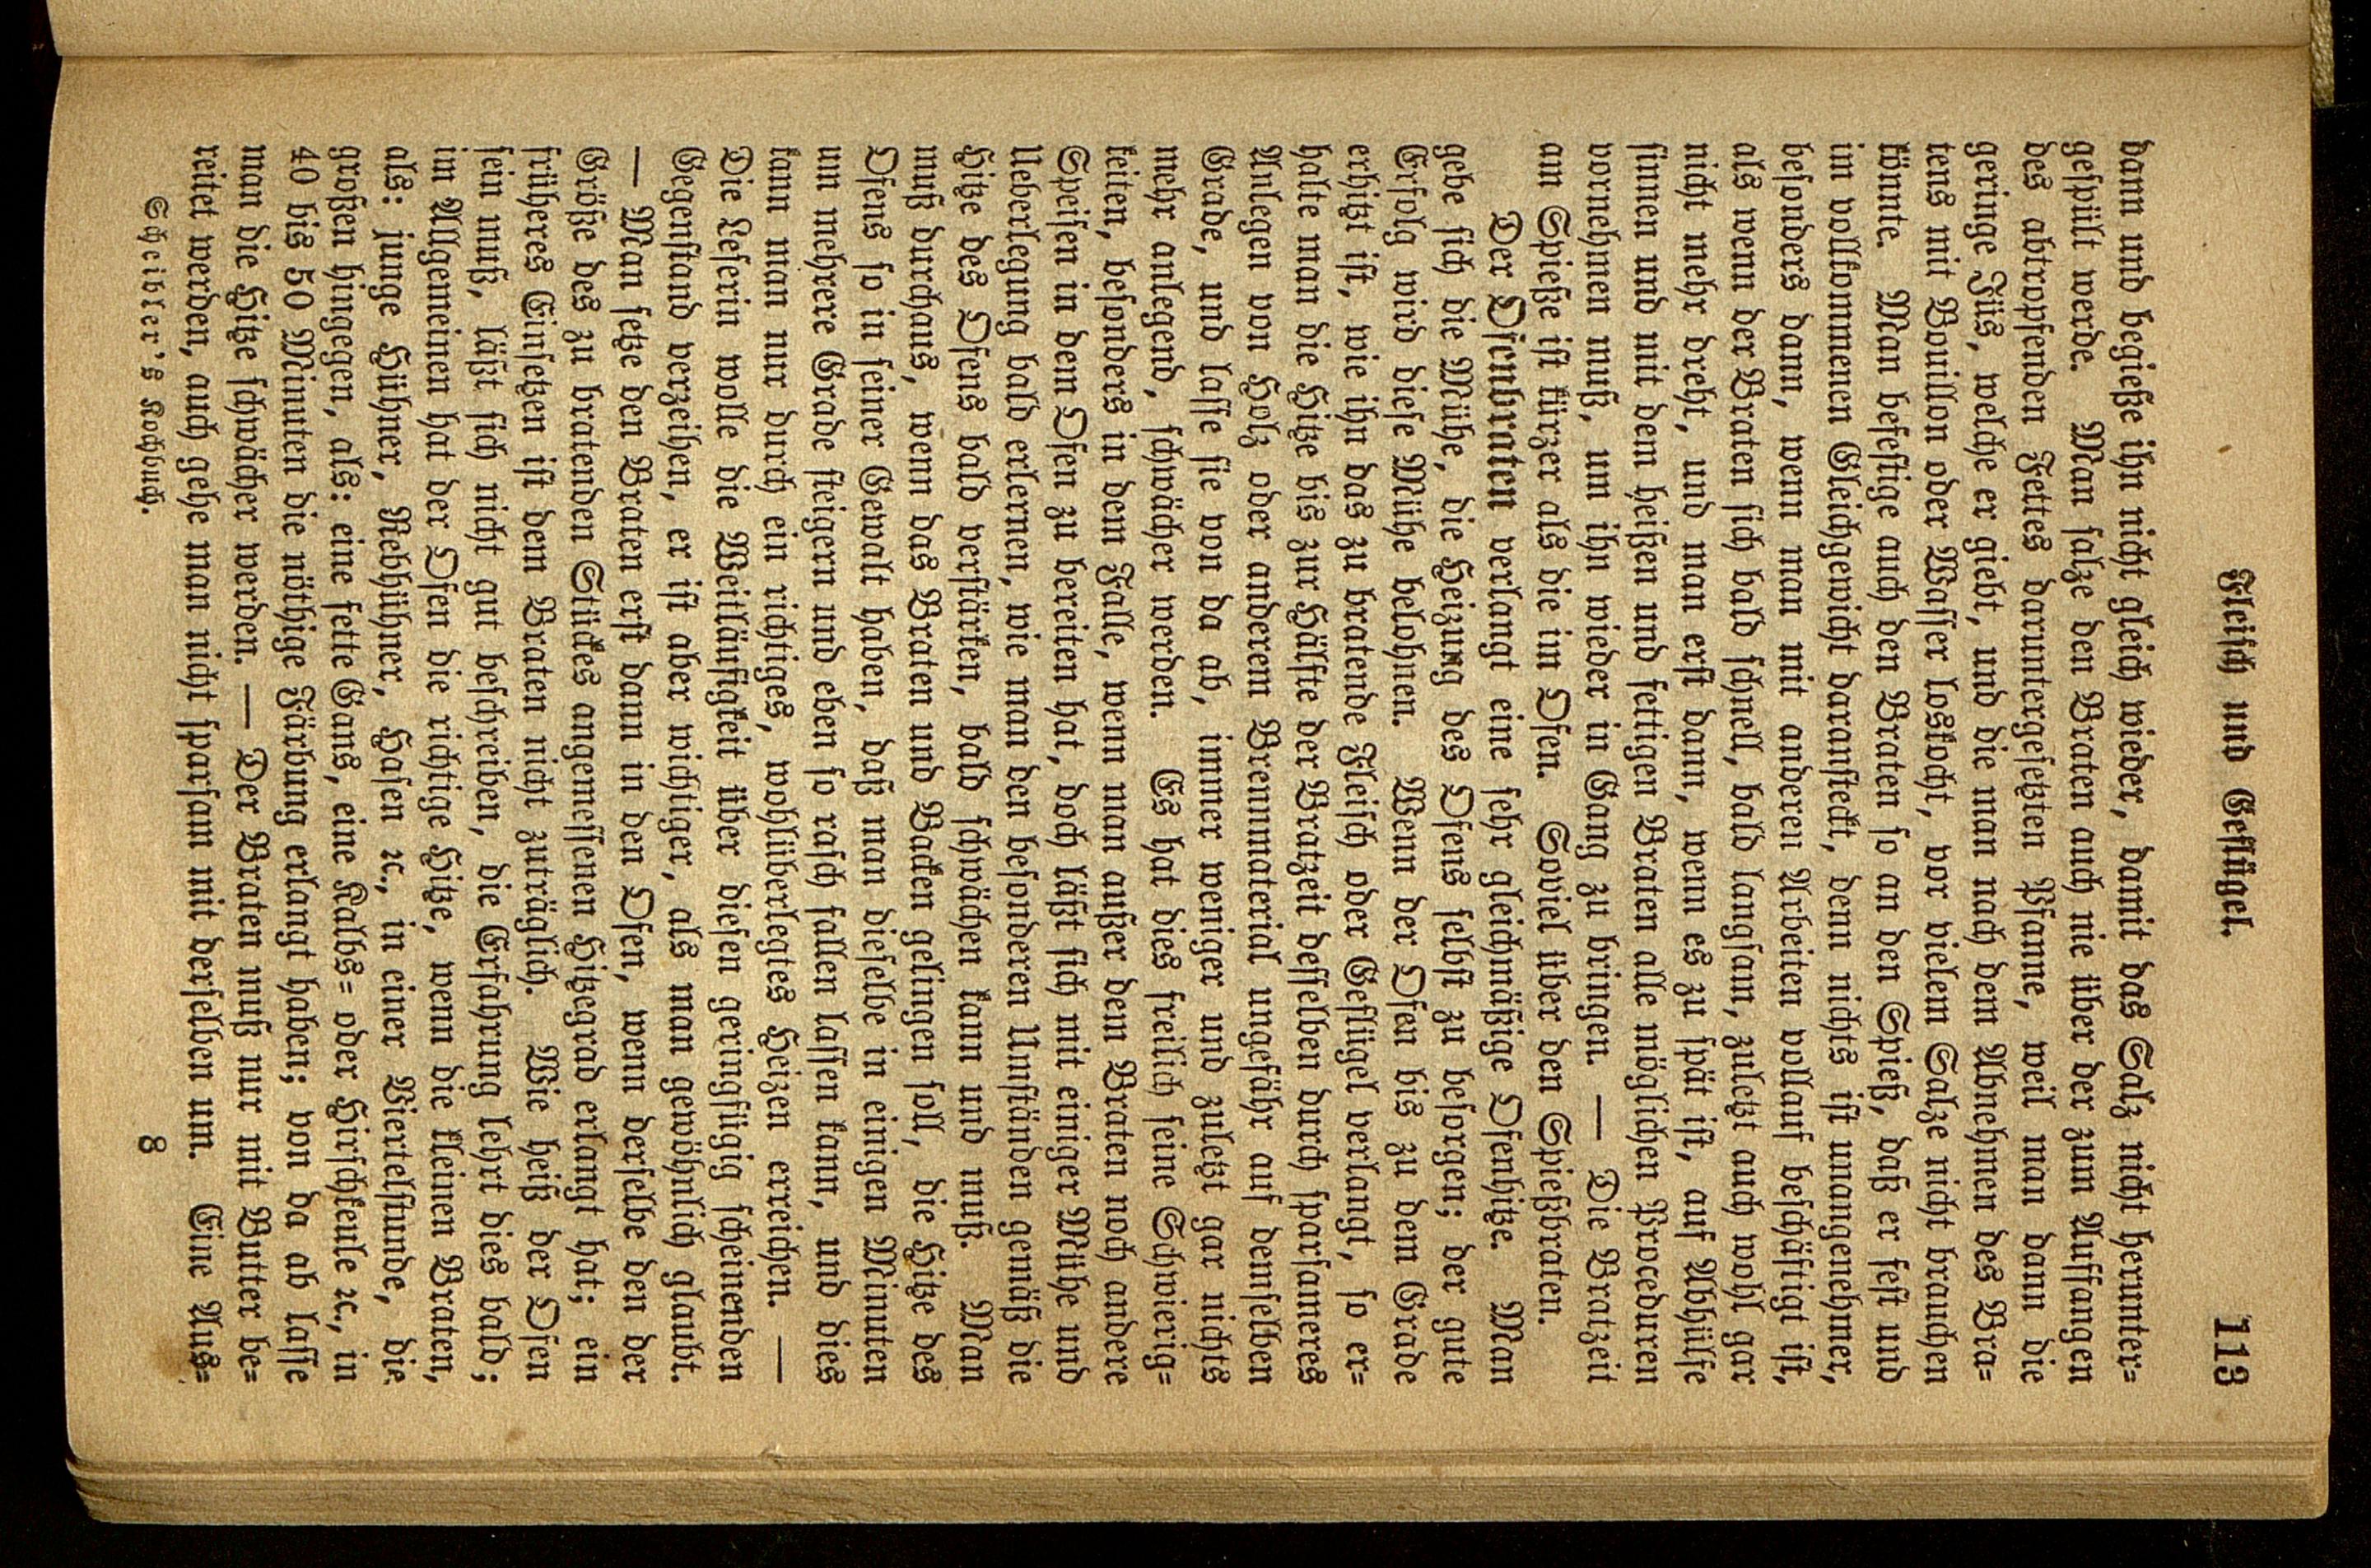 Fleisch und Geflügel. 113
dann und begieße ihn nicht gleich wieder, damit das Salz nicht herunter=
gespült werde. Man salze den Braten auch nie über der zum Auffangen
des abtropfenden Fettes daruntergesetzten Pfanne, weil man dann die
geringe Jüs, welche er giebt, und die man nach dem Abnehmen des Bra=
tens mit Bouillon oder Wasser loskocht, vor vielem Salze nicht brauchen
könnte. Man befestige auch den Braten so an den Spieß, daß er fest und
im vollkommenen Gleichgewicht daransteckt, denn nichts ist unangenehmer,
besonders dann, wenn man mit anderen Arbeiten vollauf beschäftigt ist,
als wenn der Braten sich bald schnell, bald langsam, zuletzt auch wohl gar
nicht mehr dreht, und man erst dann, wenn es zu spät ist, auf Abhülfe
sinnen und mit dem heißen und fettigen Braten alle möglichen Proceduren
vornehmen muß, um ihn wieder in Gang zu bringen. — Die Bratzeit
am Spieße ist kürzer als die im Ofen. Soviel über den Spießbraten.
Der Ofenbraten verlangt eine sehr gleichmäßige Ofenhitze. Man
gebe sich die Mühe, die Heizung des Ofens selbst zu besorgen; der gute
Erfolg wird diese Mühe belohnen. Wenn der Ofen bis zu dem Grade
erhitzt ist, wie ihn das zu bratende Fleisch oder Geflügel verlangt, so er=
halte man die Hitze bis zur Hälfte der Bratzeit desselben durch sparsameres
Anlegen von Holz oder anderem Brennmaterial ungefähr auf demselben
Grade, und lasse sie von da ab, immer weniger und zuletzt gar nichts
mehr anlegend, schwächer werden. Es hat dies freilich seine Schwierig=
keiten, besonders in dem Falle, wenn man außer dem Braten noch andere
Speisen in dem Ofen zu bereiten hat, doch läßt sich mit einiger Mühe und
Ueberlegung bald erlernen, wie man den besonderen Umständen gemäß die
Hitze des Ofens bald verstärken, bald schwächen kann und muß. Man
muß durchaus, wenn das Braten und Backen gelingen soll, die Hitze des
Ofens so in seiner Gewalt haben, daß man dieselbe in einigen Minuten
um mehrere Grade steigern und eben so rasch fallen lassen kann, und dies
kann man nur durch ein richtiges, wohlüberlegtes Heizen erreichen. —
Die Leserin wolle die Weitläufigkeit über diesen geringfügig scheinenden
Gegenstand verzeihen, er ist aber wichtiger, als man gewöhnlich glaubt.
— Man setze den Braten erst dann in den Ofen, wenn derselbe den der
Größe des zu bratenden Stückes angemessenen Hitzegrad erlangt hat; ein
früheres Einsetzen ist dem Braten nicht zuträglich. Wie heiß der Ofen
sein muß, läßt sich nicht gut beschreiben, die Erfahrung lehrt dies bald;
im Allgemeinen hat der Ofen die richtige Hitze, wenn die kleinen Braten,
als: junge Hühner, Rebhühner, Hasen ꝛc., in einer Viertelstunde, die
großen hingegen, als: eine fette Gans, eine Kalbs= oder Hirschkeule ꝛc., in
40 bis 50 Minuten die nöthige Färbung erlangt haben; von da ab lasse
man die Hitze schwächer werden. — Der Braten muß nur mit Butter be=
reitet werden, auch gehe man nicht sparsam mit derselben um. Eine Aus=
Scheibler's Kochbuch. 8